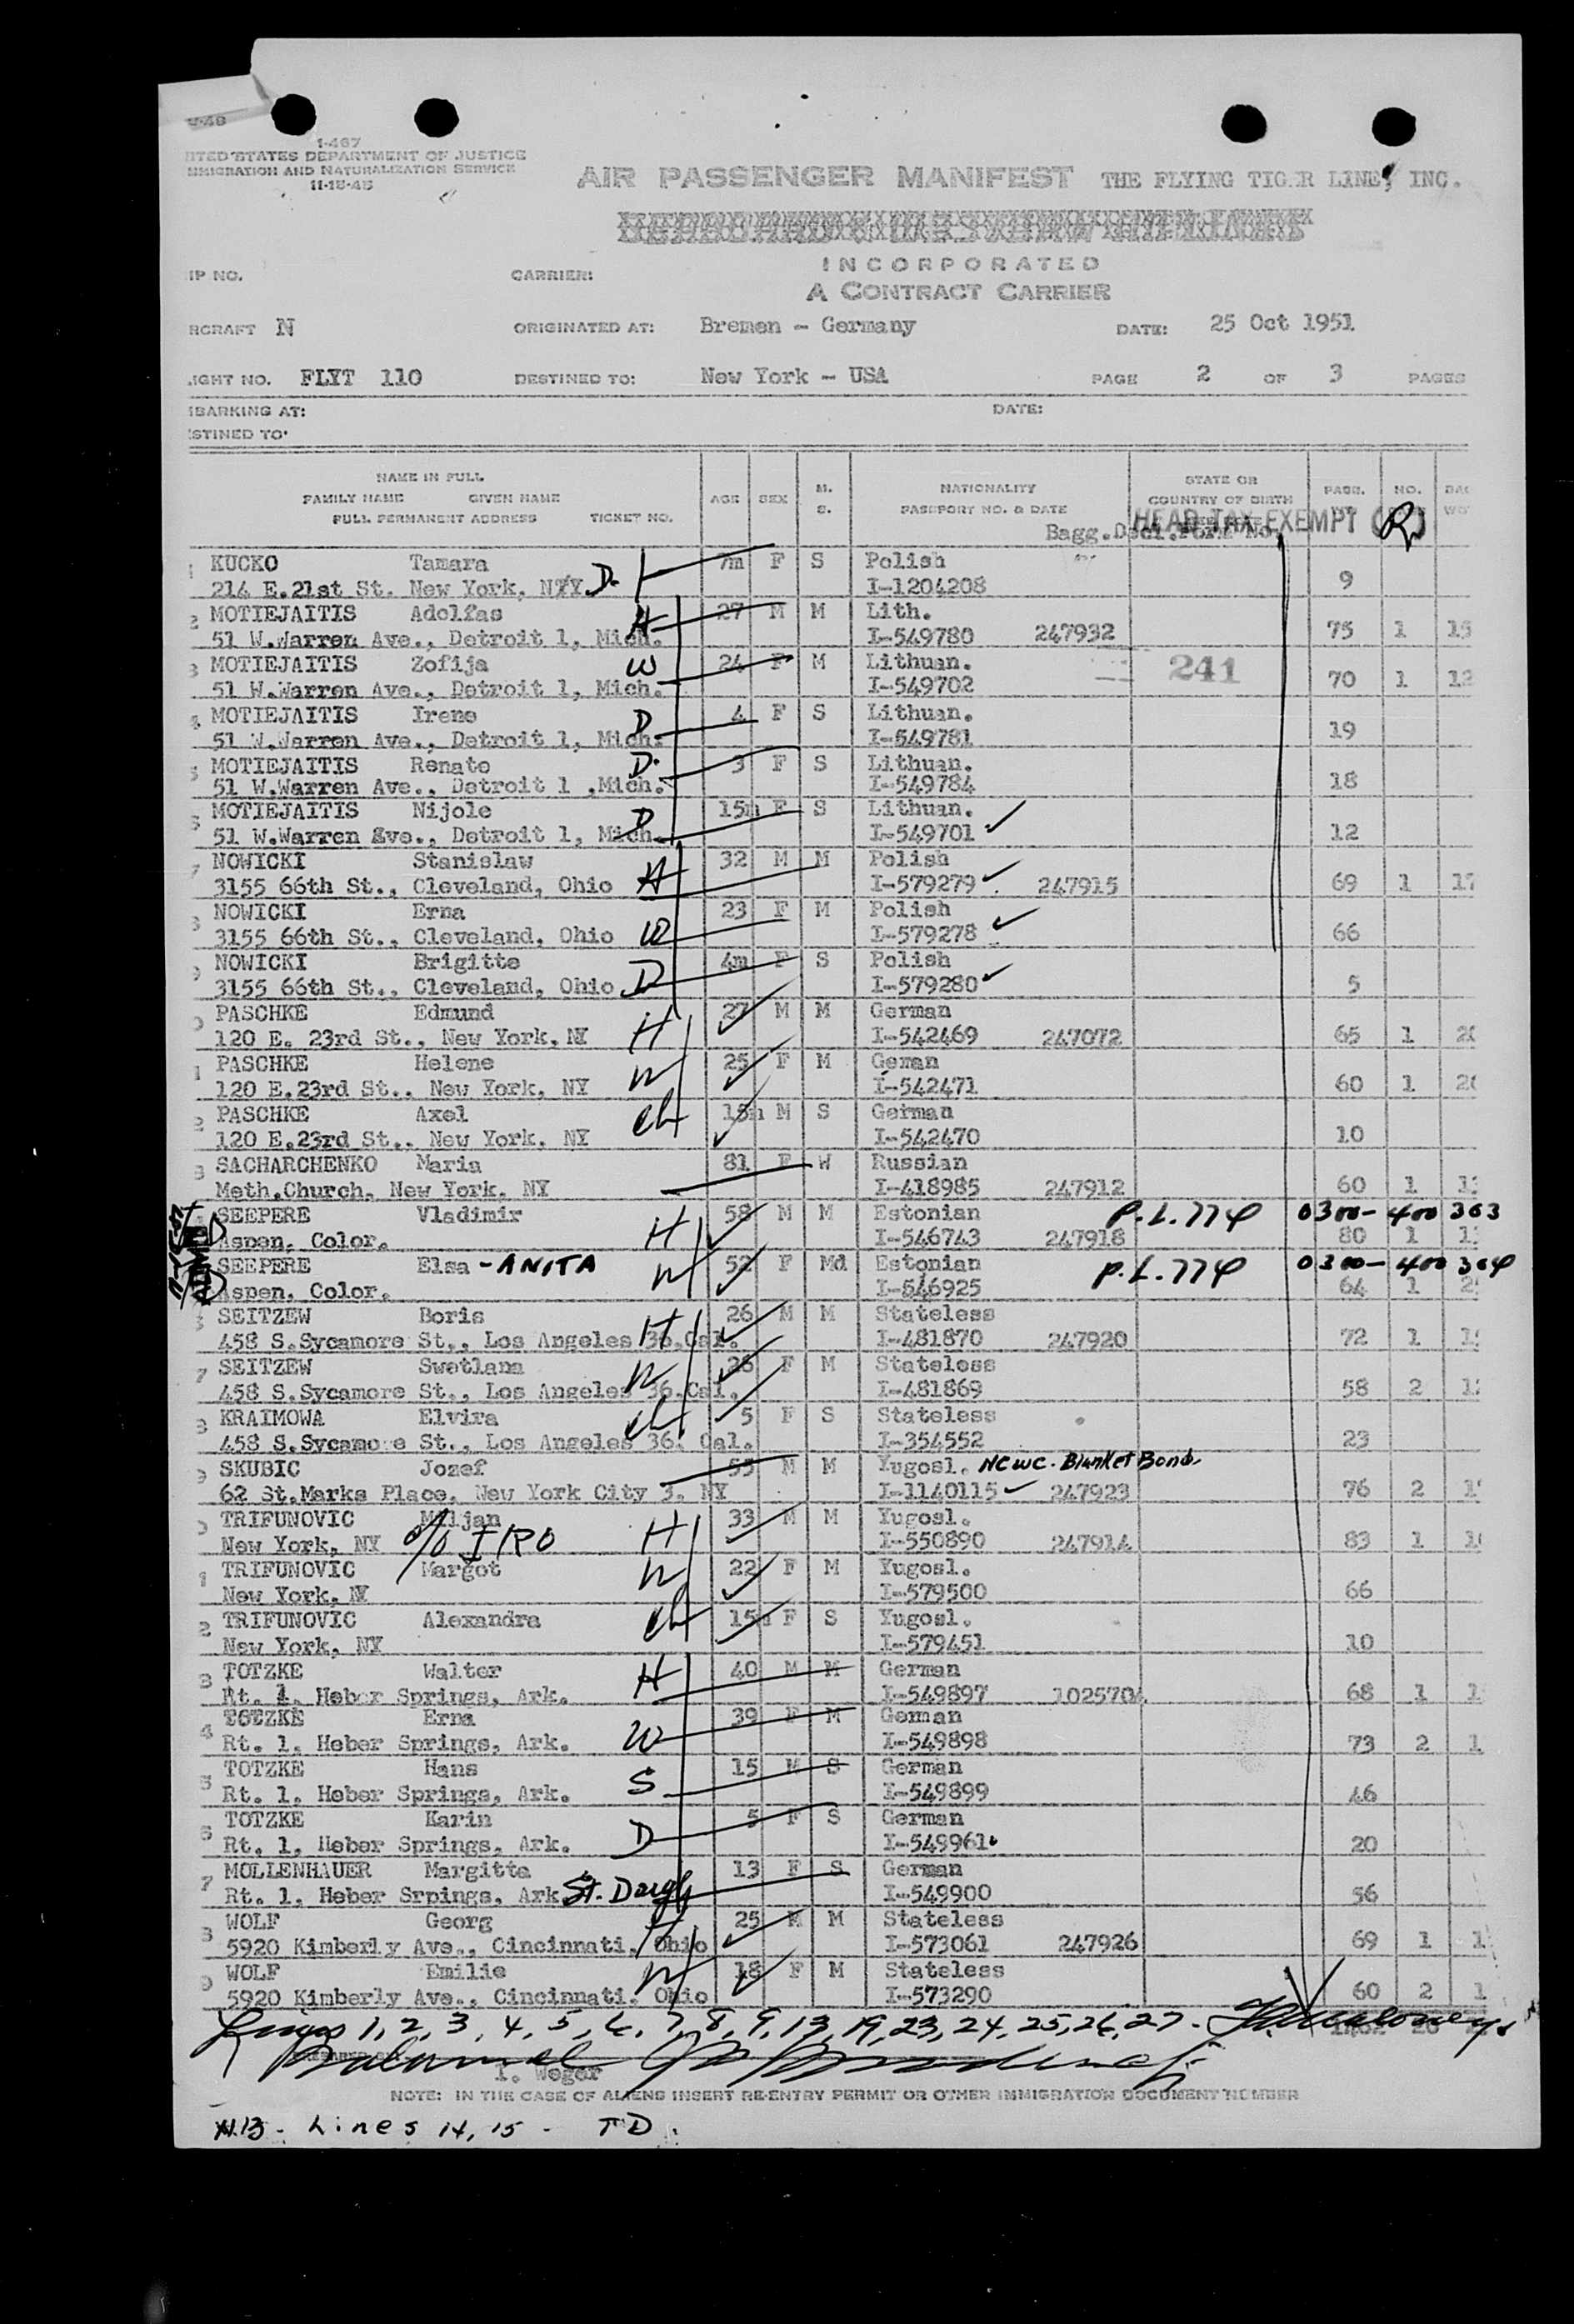 1-467
UNITED STATES DEPARTMENT OF JUSTICE
IMMIGRATION AND NATURALIZATION SERVICE
11-15-45
AIR PASSENGER MANIFEST THE FLYING TIGER LINE, INC.
INCORPORATED
A CONTRACT CARRIER
IP NO. CARRIER:
RCRAFT N ORIGINATED AT: Bremen - Germany DATE: 25 Oct 1951
IGHT NO. FLYT 110 DESTINED TO: New York - USA PAGE 2 OF 3 PAGES
MBARKING AT: DATE:
ESTINED TO:
NAME IN FULL
FAMILY NAME GIVEN NAME
FULL PERMANENT ADDRESS TICKET NO.
AGE SEX M. S. NATIONALITY PASSPORT NO. & DATE STATE OR COUNTRY OF BIRTH PASS. NO.
Bagg.Decl.Form No. HEAD TAX EXEMPT
1 KUCKO Tamara 7m F S Polish
214 E.21st St. New York, NY D. I-1204208 9
2 MOTIEJAITIS Adolfas 27 M M Lith.
51 W.Warren Ave., Detroit 1, Mich. H I-549780 247932 75 1 15
3 MOTIEJAITIS Zofija W 24 F M Lithuan. 241
51 W.Warren Ave., Detroit 1, Mich. I-549702 70 1 12
4 MOTIEJAITIS Irene D 4 F S Lithuan.
51 W.Warren Ave., Detroit 1, Mich. I-549781 19
5 MOTIEJAITIS Renate D. 3 F S Lithuan.
51 W.Warren Ave., Detroit 1 ,Mich. I-549784 18
6 MOTIEJAITIS Nijole D 15m F S Lithuan.
51 W.Warren Ave., Detroit 1, Mich. I-549701 12
7 NOWICKI Stanislaw 32 M M Polish
3155 66th St., Cleveland, Ohio H I-579279 247915 69 1 17
8 NOWICKI Erna 23 F M Polish
3155 66th St., Cleveland, Ohio W I-579278 66
9 NOWICKI Brigitte 4m F S Polish
3155 66th St., Cleveland, Ohio D I-579280 5
0 PASCHKE Edmund 27 M M German
120 E. 23rd St., New York, NY H I-542469 247072 65 1 20
1 PASCHKE Helene 25 F M Geman
120 E.23rd St., New York, NY W I-542471 60 1 20
2 PASCHKE Axel Ch 18m M S German
120 E.23rd St., New York, NY I-542470 10
3 SACHARCHENKO Maria 81 F W Russian
Meth.Church, New York, NY I-418985 247912 60 1
SEEPERE Vladimir 58 M M Estonian P.L.774 0300-400 363
Aspen, Color. H I-546743 247918 80 1
SEEPERE Elsa - ANITA 52 F Md Estonian P.L.774 0300-400 364
Aspen, Color. W I-546925 64 1
SEITZEW Boris 26 M M Stateless
458 S.Sycamore St., Los Angeles 36.Cal. H I-481870 247920 72 1
7 SEITZEW Swetlana 26 F M Stateless
458 S.Sycamore St., Los Angeles 36.Cal. W I-481869 58 2
8 KRAIMOWA Elvira Ch 5 F S Stateless
458 S.Sycamore St., Los Angeles 36. Cal. I-354552 23
9 SKUBIC Jozef 55 M M Yugosl. NCWC. Blanket Bond.
62 St.Marks Place, New York City 3. NY I-1140115 247923 76 2
0 TRIFUNOVIC Miljan 33 M M Yugosl.
New York, NY c/o IRO H I-550890 247914 83 1
1 TRIFUNOVIC Margot 22 F M Yugosl.
New York, NY W I-579500 66
2 TRIFUNOVIC Alexandra Ch 15m F S Yugosl.
New York, NY I-579451 10
3 TOTZKE Walter 40 M M German
Rt. 1, Heber Springs, Ark. H I-549897 1025704 68 1 1
4 TOTZKE Erna 39 F M Geman
Rt. 1, Heber Springs, Ark. W I-549898 73 2 1
5 TOTZKE Hans 15 M S German
Rt. 1, Heber Springs, Ark. S I-549899 46
6 TOTZKE Karin 5 F S German
Rt. 1, Heber Springs, Ark. D I-549961 20
7 MOLLENHAUER Margitta 13 F S German
Rt. 1, Heber Srpings, Ark. St. Daugh I-549900 56
8 WOLF Georg 25 M M Stateless
5920 Kimberly Ave., Cincinnati, Ohio H I-573061 247926 69 1 1
9 WOLF Emilie 18 F M Stateless
5920 Kimberly Ave., Cincinnati, Ohio W I-573290 60 2 1
Lines 1, 2, 3, 4, 5, 6, 7, 8, 9, 13, 19, 23, 24, 25, 26, 27.
I. Weger
NOTE: IN THE CASE OF ALIENS INSERT RE-ENTRY PERMIT OR OTHER IMMIGRATION DOCUMENT NUMBER
Lines 14, 15 - TD.